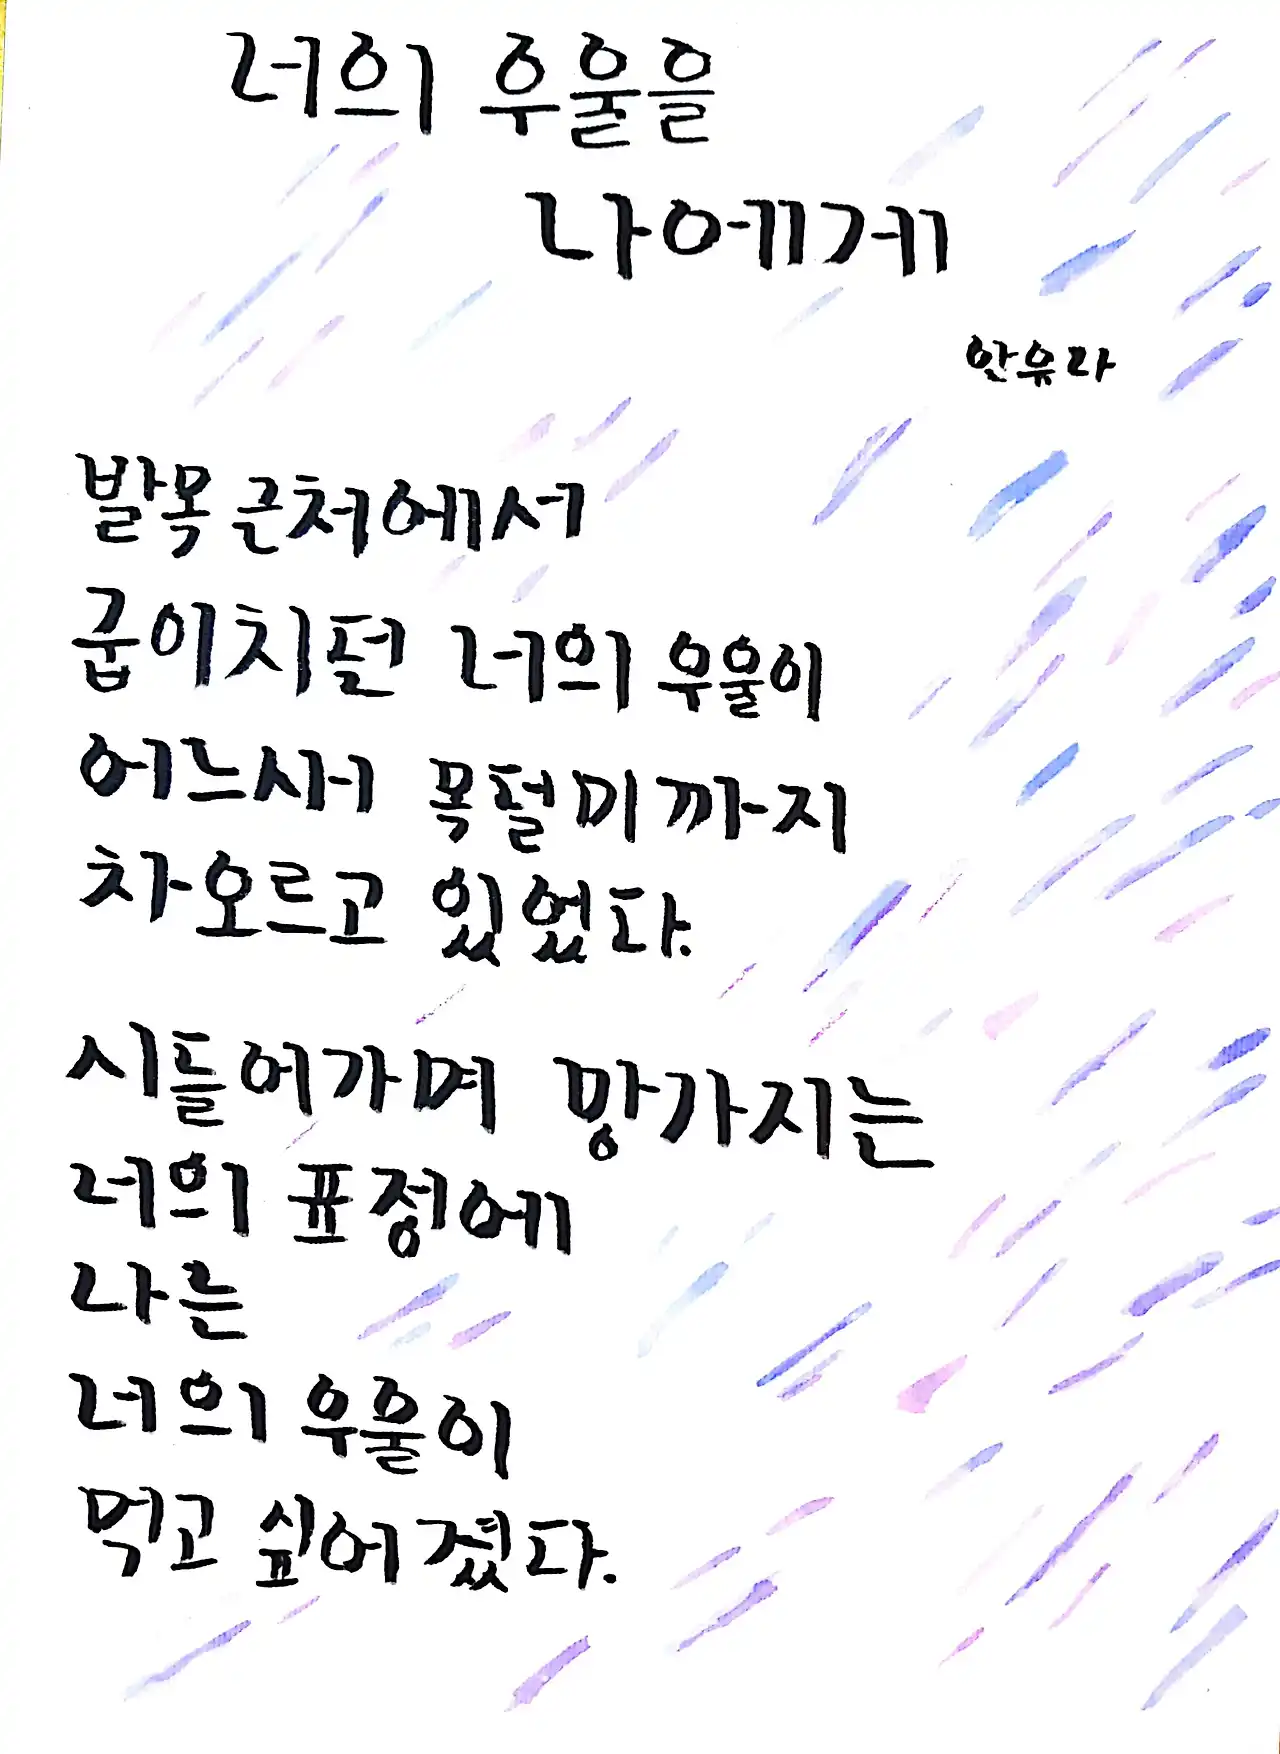 너의 우울을
나에게
안유라
발목 근처에서
굽이치던 너의 우울이
어느새 목덜미까지
차오르고 있었다.
시들어가며 망가지는
너의 표정에
나는
너의 우울이
먹고 싶어졌다.